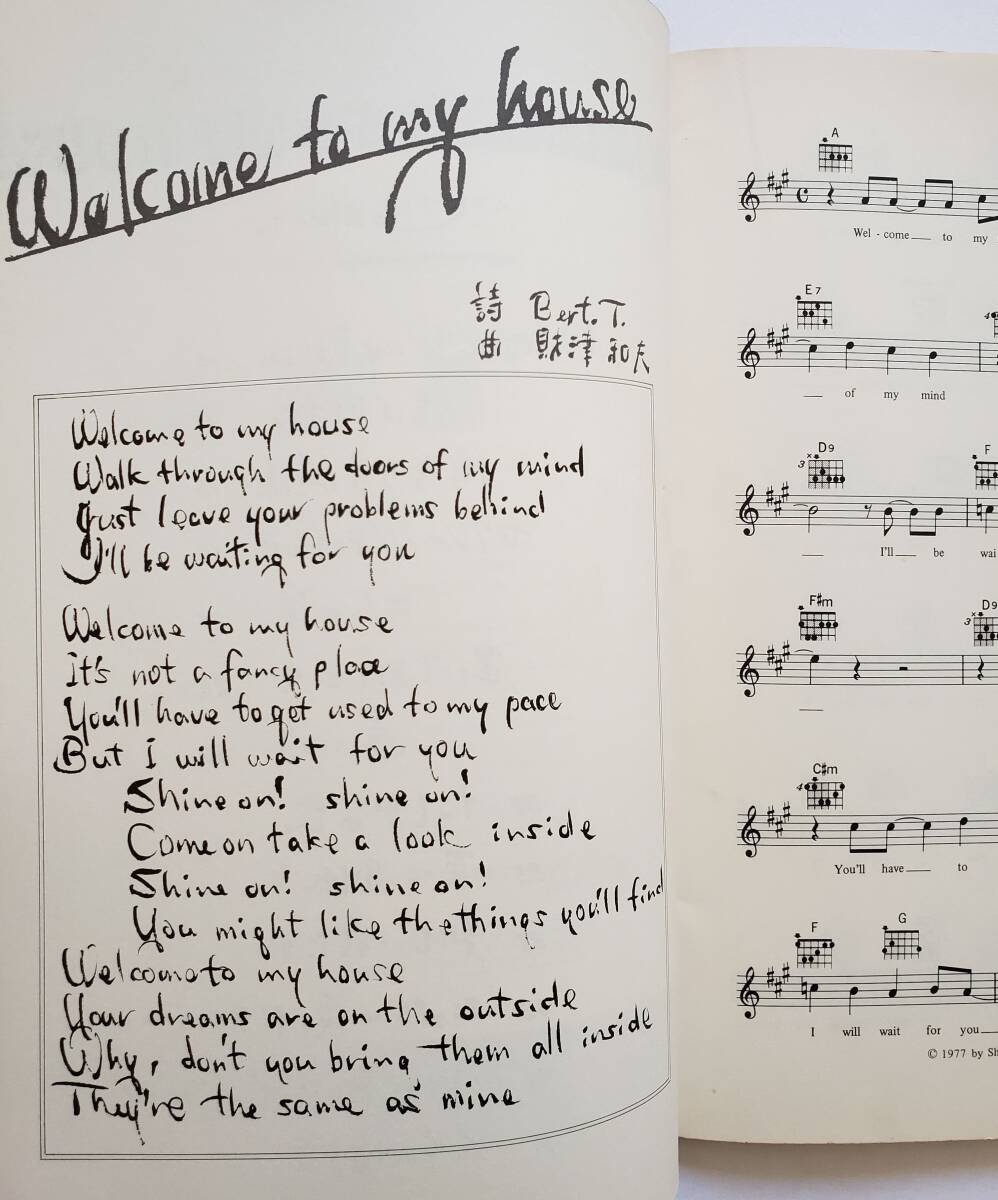 Welcome to my house
詩 Bert. T.
曲 財津 和夫
Welcome to my house
Walk through the doors of my mind
Just leave your problems behind
I'll be waiting for you
Welcome to my house
It's not a fancy place
You'll have to get used to my pace
But I will wait for you
Shine on! shine on!
Come on take a look inside
Shine on! shine on!
You might like the things you'll find
Welcome to my house
Your dreams are on the outside
Why, don't you bring them all inside
They're the same as mine
A
Wel - come to my
E7
of my mind
D9 F
3
I'll be wai
F#m D9
3
C#m
4
You'll have to
F G
I will wait for you
© 1977 by Sh